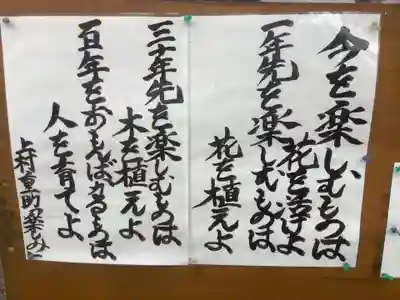 今を楽しむものは
花を活けよ
一年先を楽しむものは
花を植えよ
三十年先を楽しむものは
木を植えよ
百年をおもんばかるものは
人を育てよ